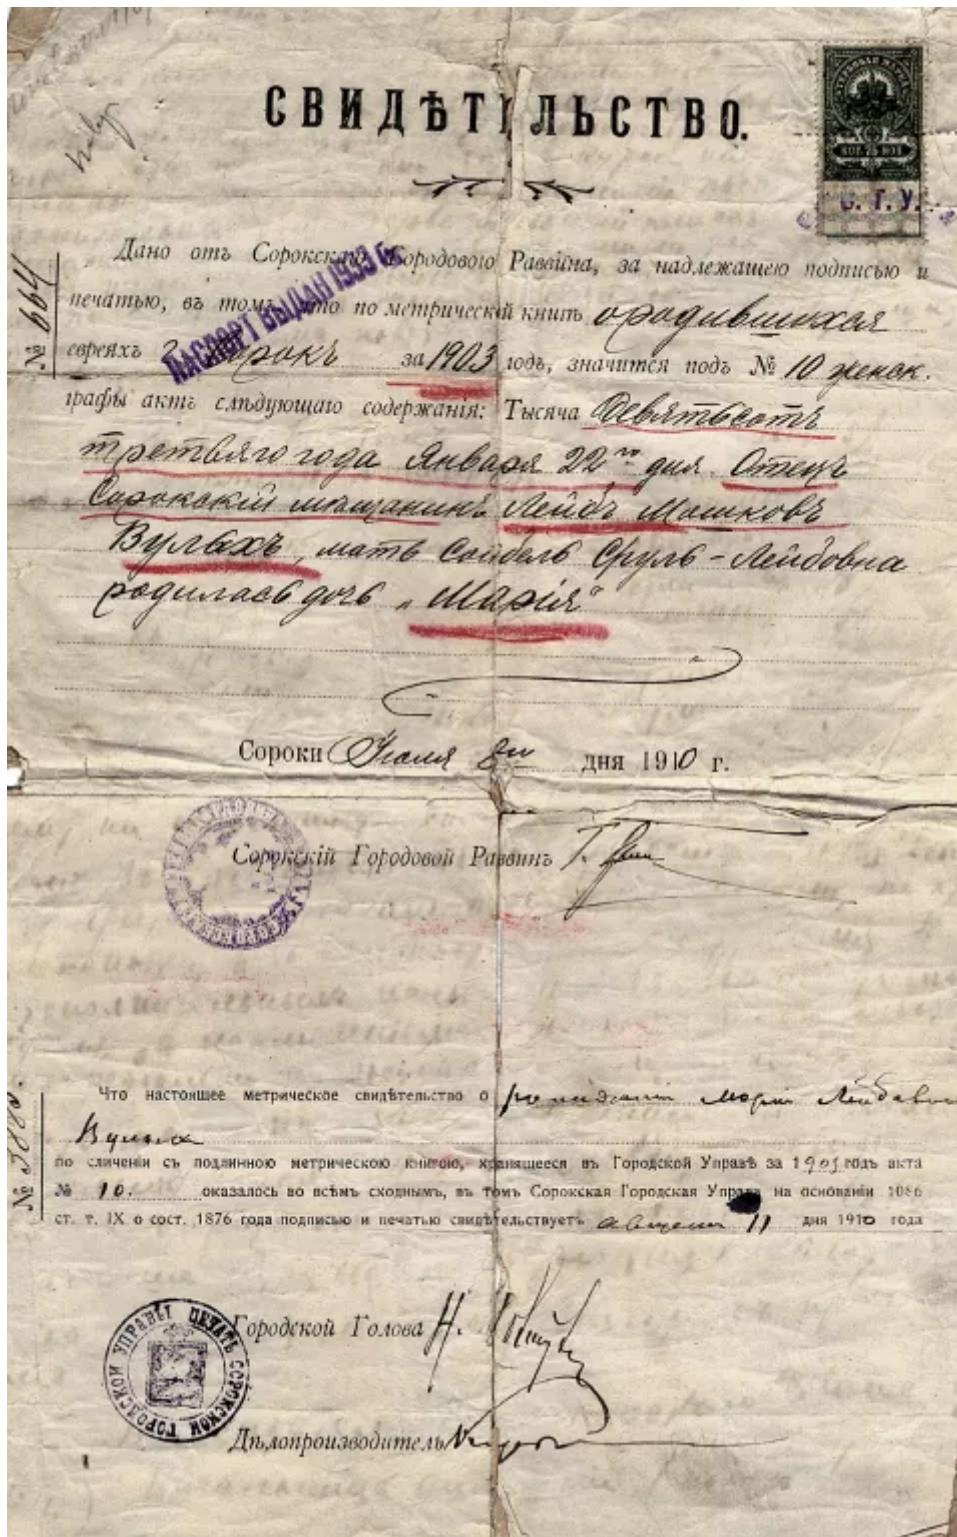 СВИДѢТЕЛЬСТВО.
С. Г. У.
№ 664
Дано отъ Сорокскаго Городового Раввина, за надлежащею подписью и
печатью, въ томъ, что по метрической книгѣ о родившихся
евреяхъ г. Сорокъ за 1903 годъ, значится подъ № 10 женск.
ПАСПОРТ ВЫДАН 1933 г.
графы актъ слѣдующаго содержанія: Тысяча Девятьсотъ
третьяго года Января 22го дня. Отецъ
Сорокскій мѣщанинъ Лейбъ Мошковъ
Вульхъ, мать Сойбель Сруль-Лейбовна
родилась дочь „Марія"
Сороки Іюля 8го дня 1910 г.
Сорокскій Городовой Раввинъ
Что настоящее метрическое свидѣтельство о рожденіи Маріи
по сличеніи съ подлинною метрическою книгою, хранящееся въ Городской Управѣ за 1903 годъ акта
№ 10. оказалось во всѣмъ сходнымъ, въ томъ Сорокская Городская Управа на основаніи 1086
ст. т. IX о сост. 1876 года подписью и печатью свидѣтельствуетъ августа 11 дня 1910 года
Городской Голова
ПЕЧАТЬ СОРОКСКОЙ ГОРОДСКОЙ УПРАВЫ
Дѣлопроизводитель